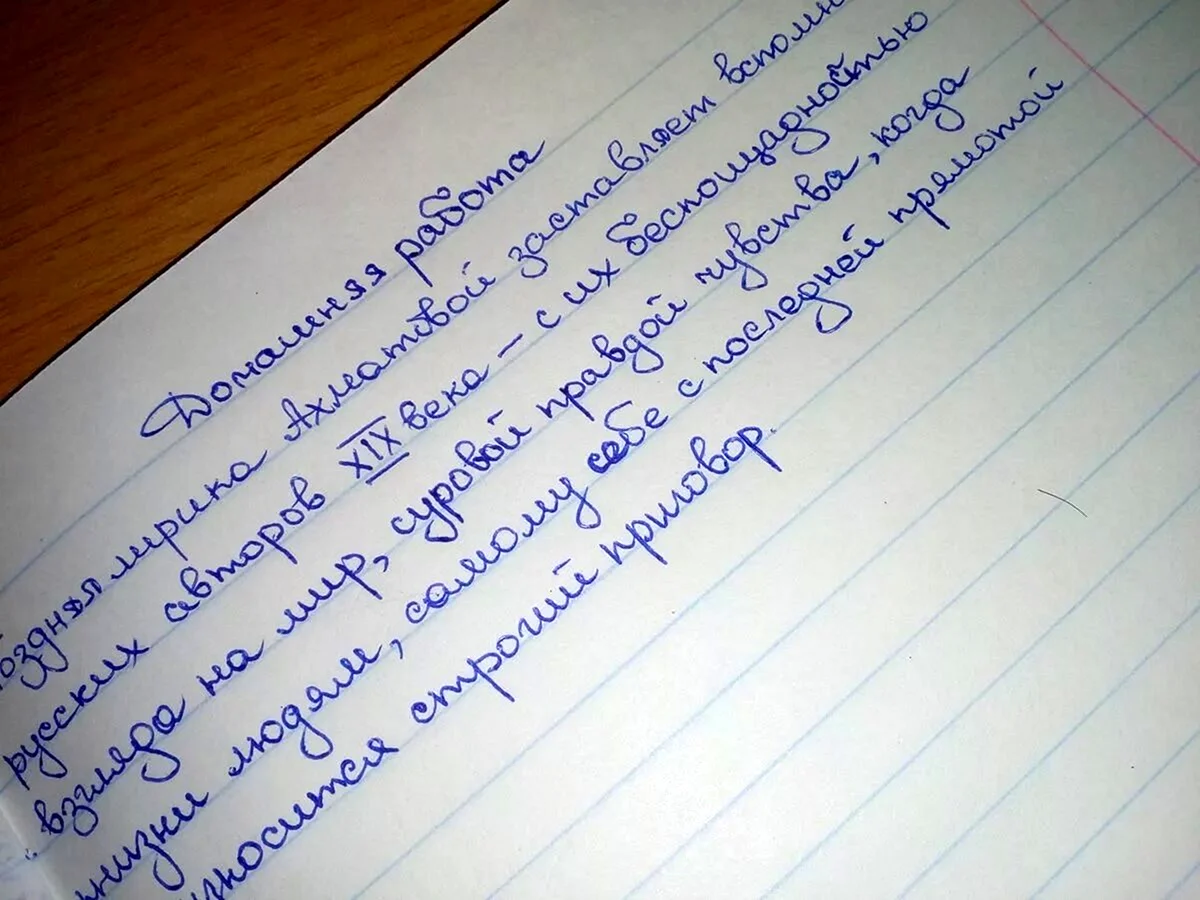 Домашняя работа
оздняя лирика Ахматовой заставляет вспомн
русских авторов XIX века – с их беспощадностью
взгляда на мир, суровой правдой чувства, когда
жизни людям, самому себе с последней прямотой
износится строгий приговор.